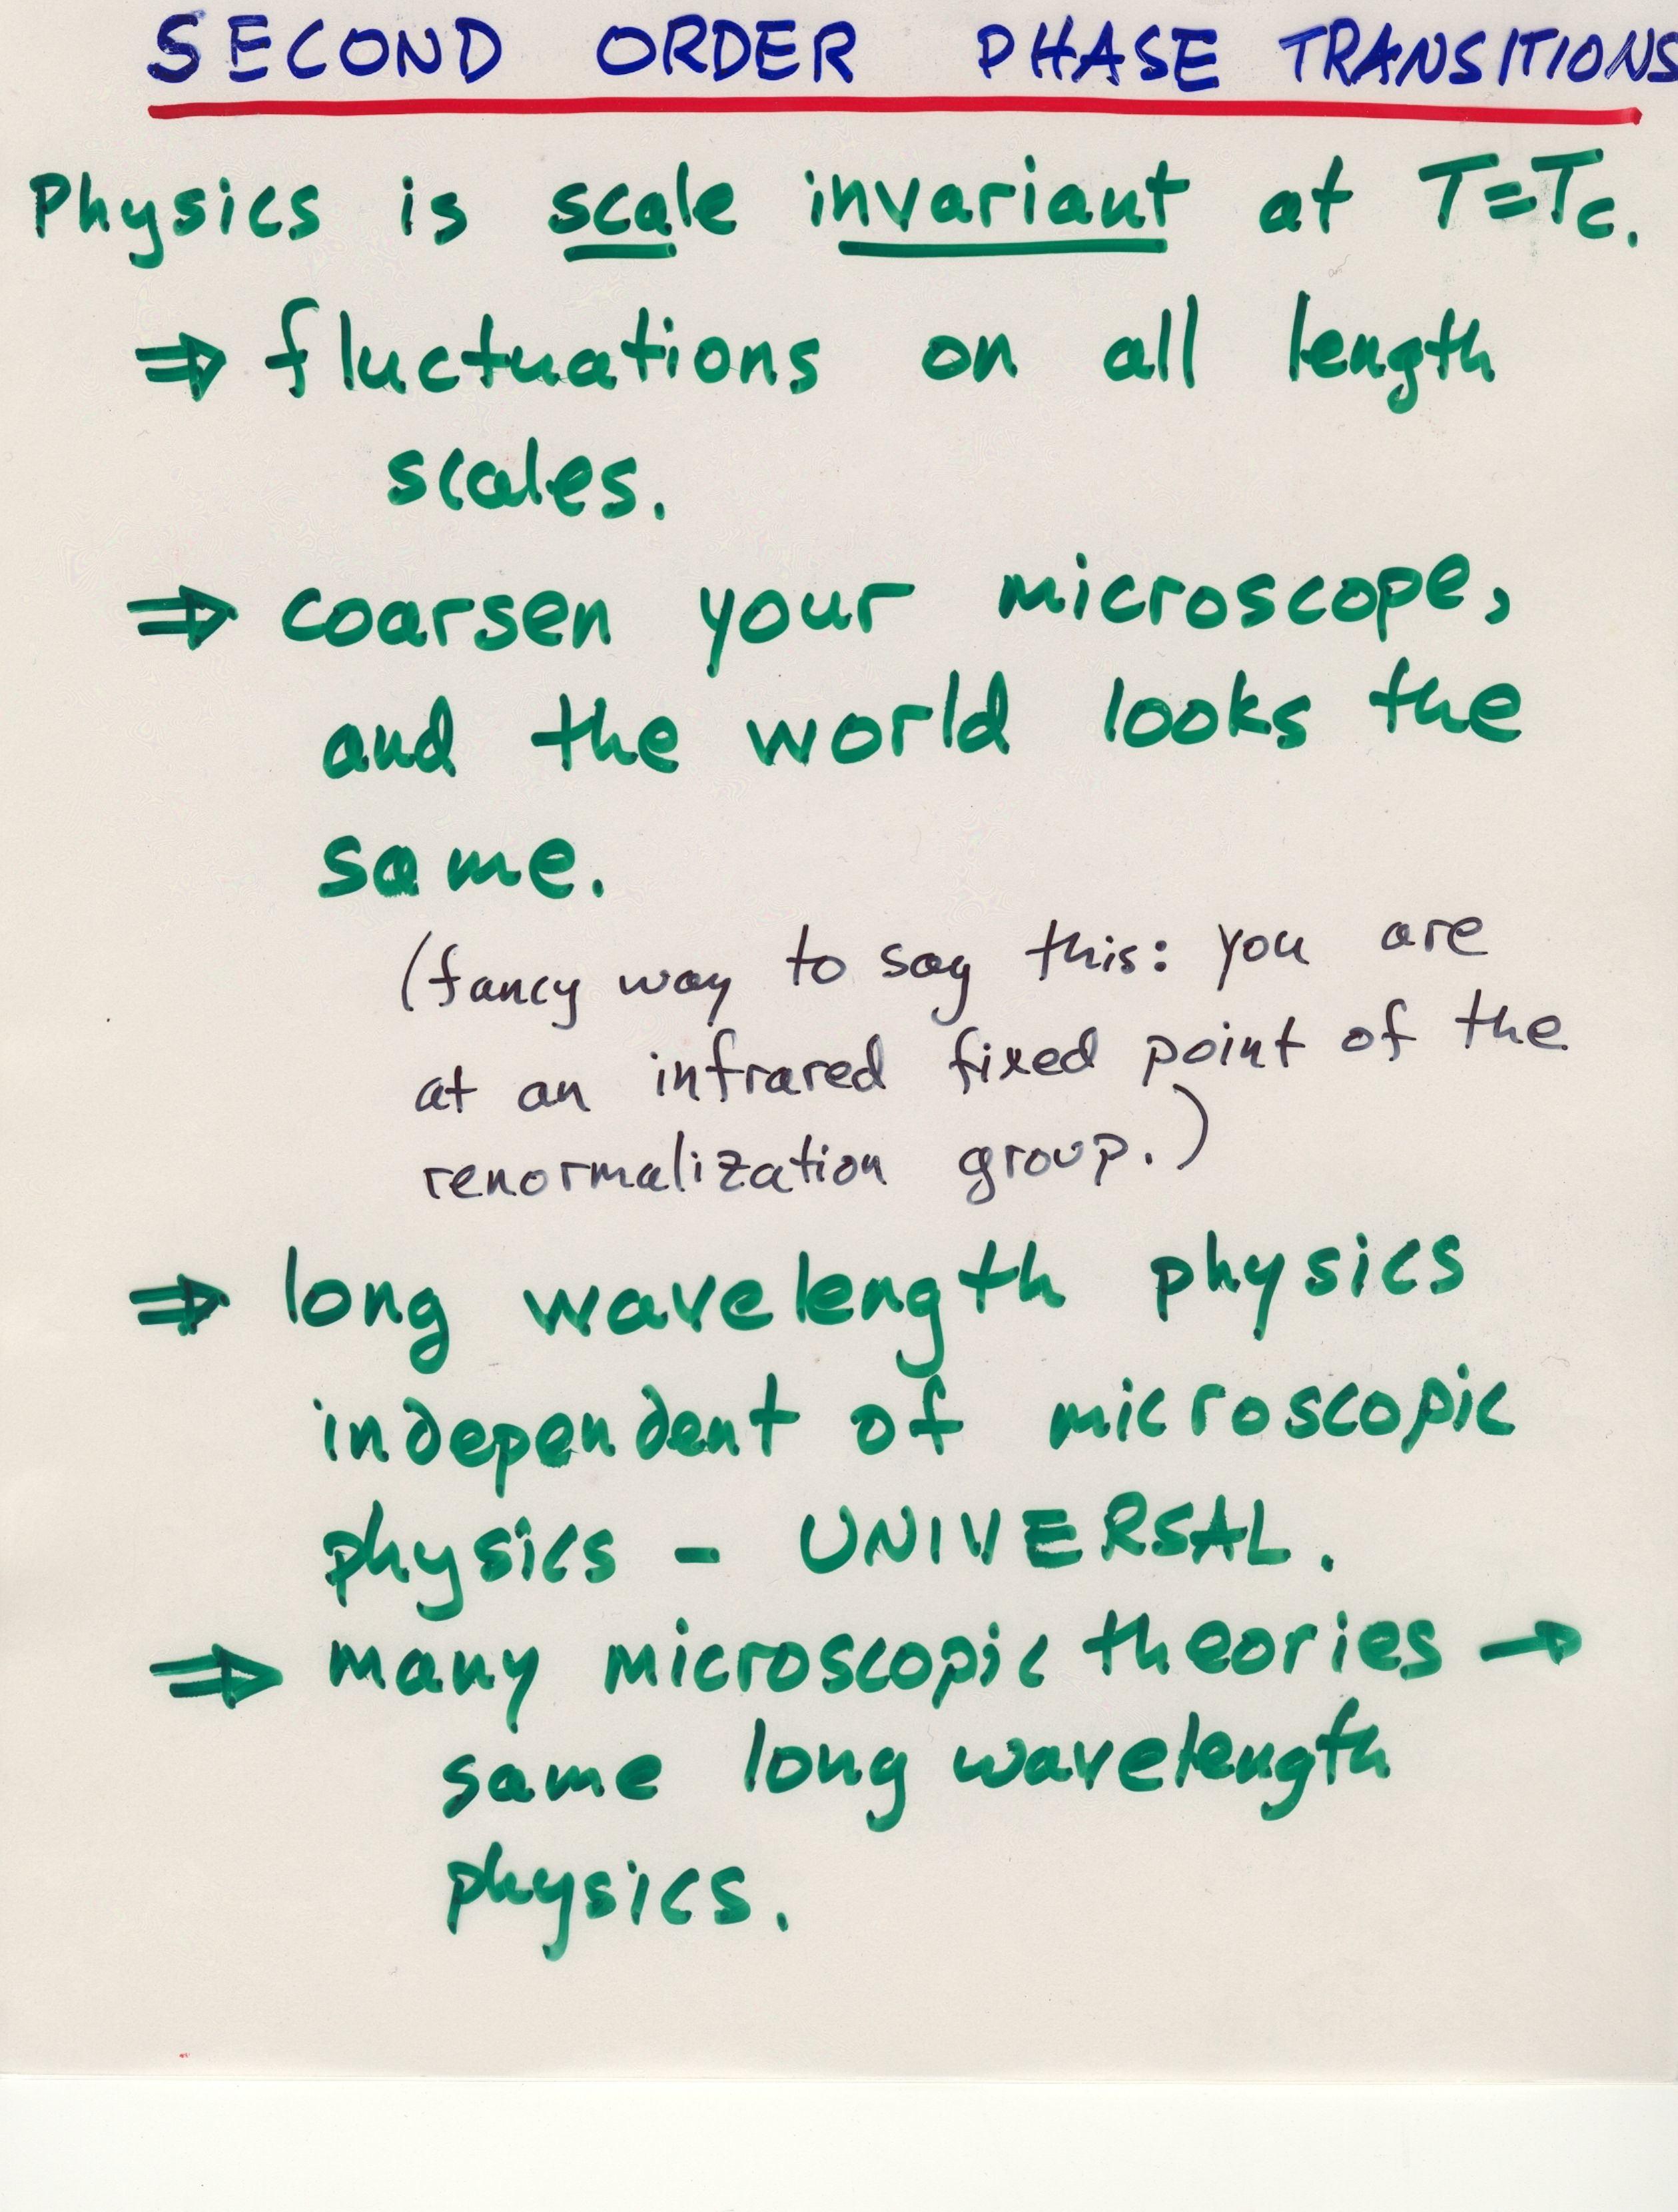 SECOND ORDER PHASE TRANSITIONS
Physics is scale invariant at T=Tc.
⇒ fluctuations on all length
scales.
⇒ coarsen your microscope,
and the world looks the
same.
(fancy way to say this: you are
at an infrared fixed point of the
renormalization group.)
⇒ long wavelength physics
independent of microscopic
physics - UNIVERSAL.
⇒ many microscopic theories →
same long wavelength
physics.